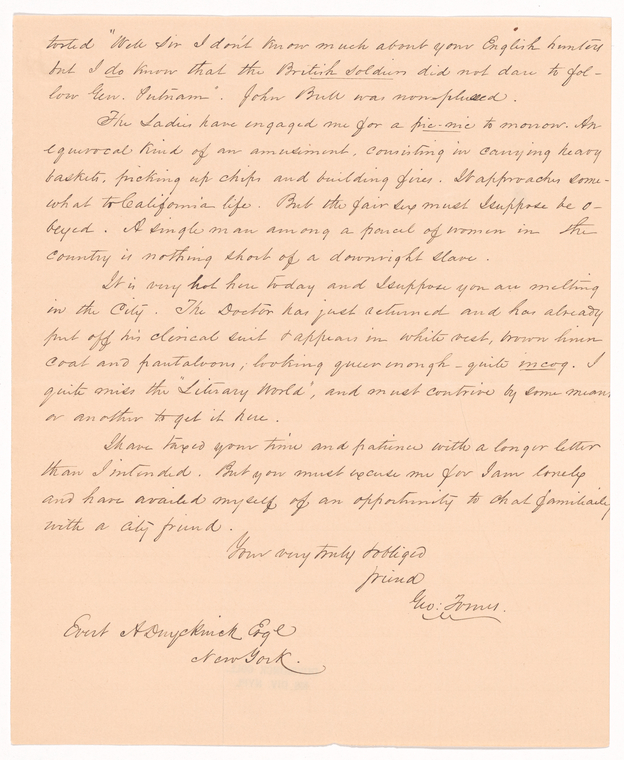 torted "Well Sir I don't know much about your English hunters
but I do know that the British soldiers did not dare to fol-
low Gen. Putnam". John Bull was non-plussed.
The Ladies have engaged me for a pic-nic to morrow. An
equivocal kind of an amusement, consisting in carrying heavy
baskets, picking up chips and building fires. It approaches some-
what to California life. But the fair sex must I suppose be o-
beyed. A single man among a parcel of women in the
country is nothing short of a downright slave.
It is very hot here today and I suppose you are melting
in the City. The Doctor has just returned and has already
put off his clerical suit & appears in white vest, brown linen
coat and pantaloons; looking queer enough - quite incog. I
quite miss the "Literary World", and must contrive by some means
or another to get it here.
I have taxed your time and patience with a longer letter
than I intended. But you must excuse me for I am lonely
and have availed myself of an opportunity to chat familiarly
with a city friend.
Your very truly obliged
friend
Geo:
Evert A Duyckinck Esqr
New York.